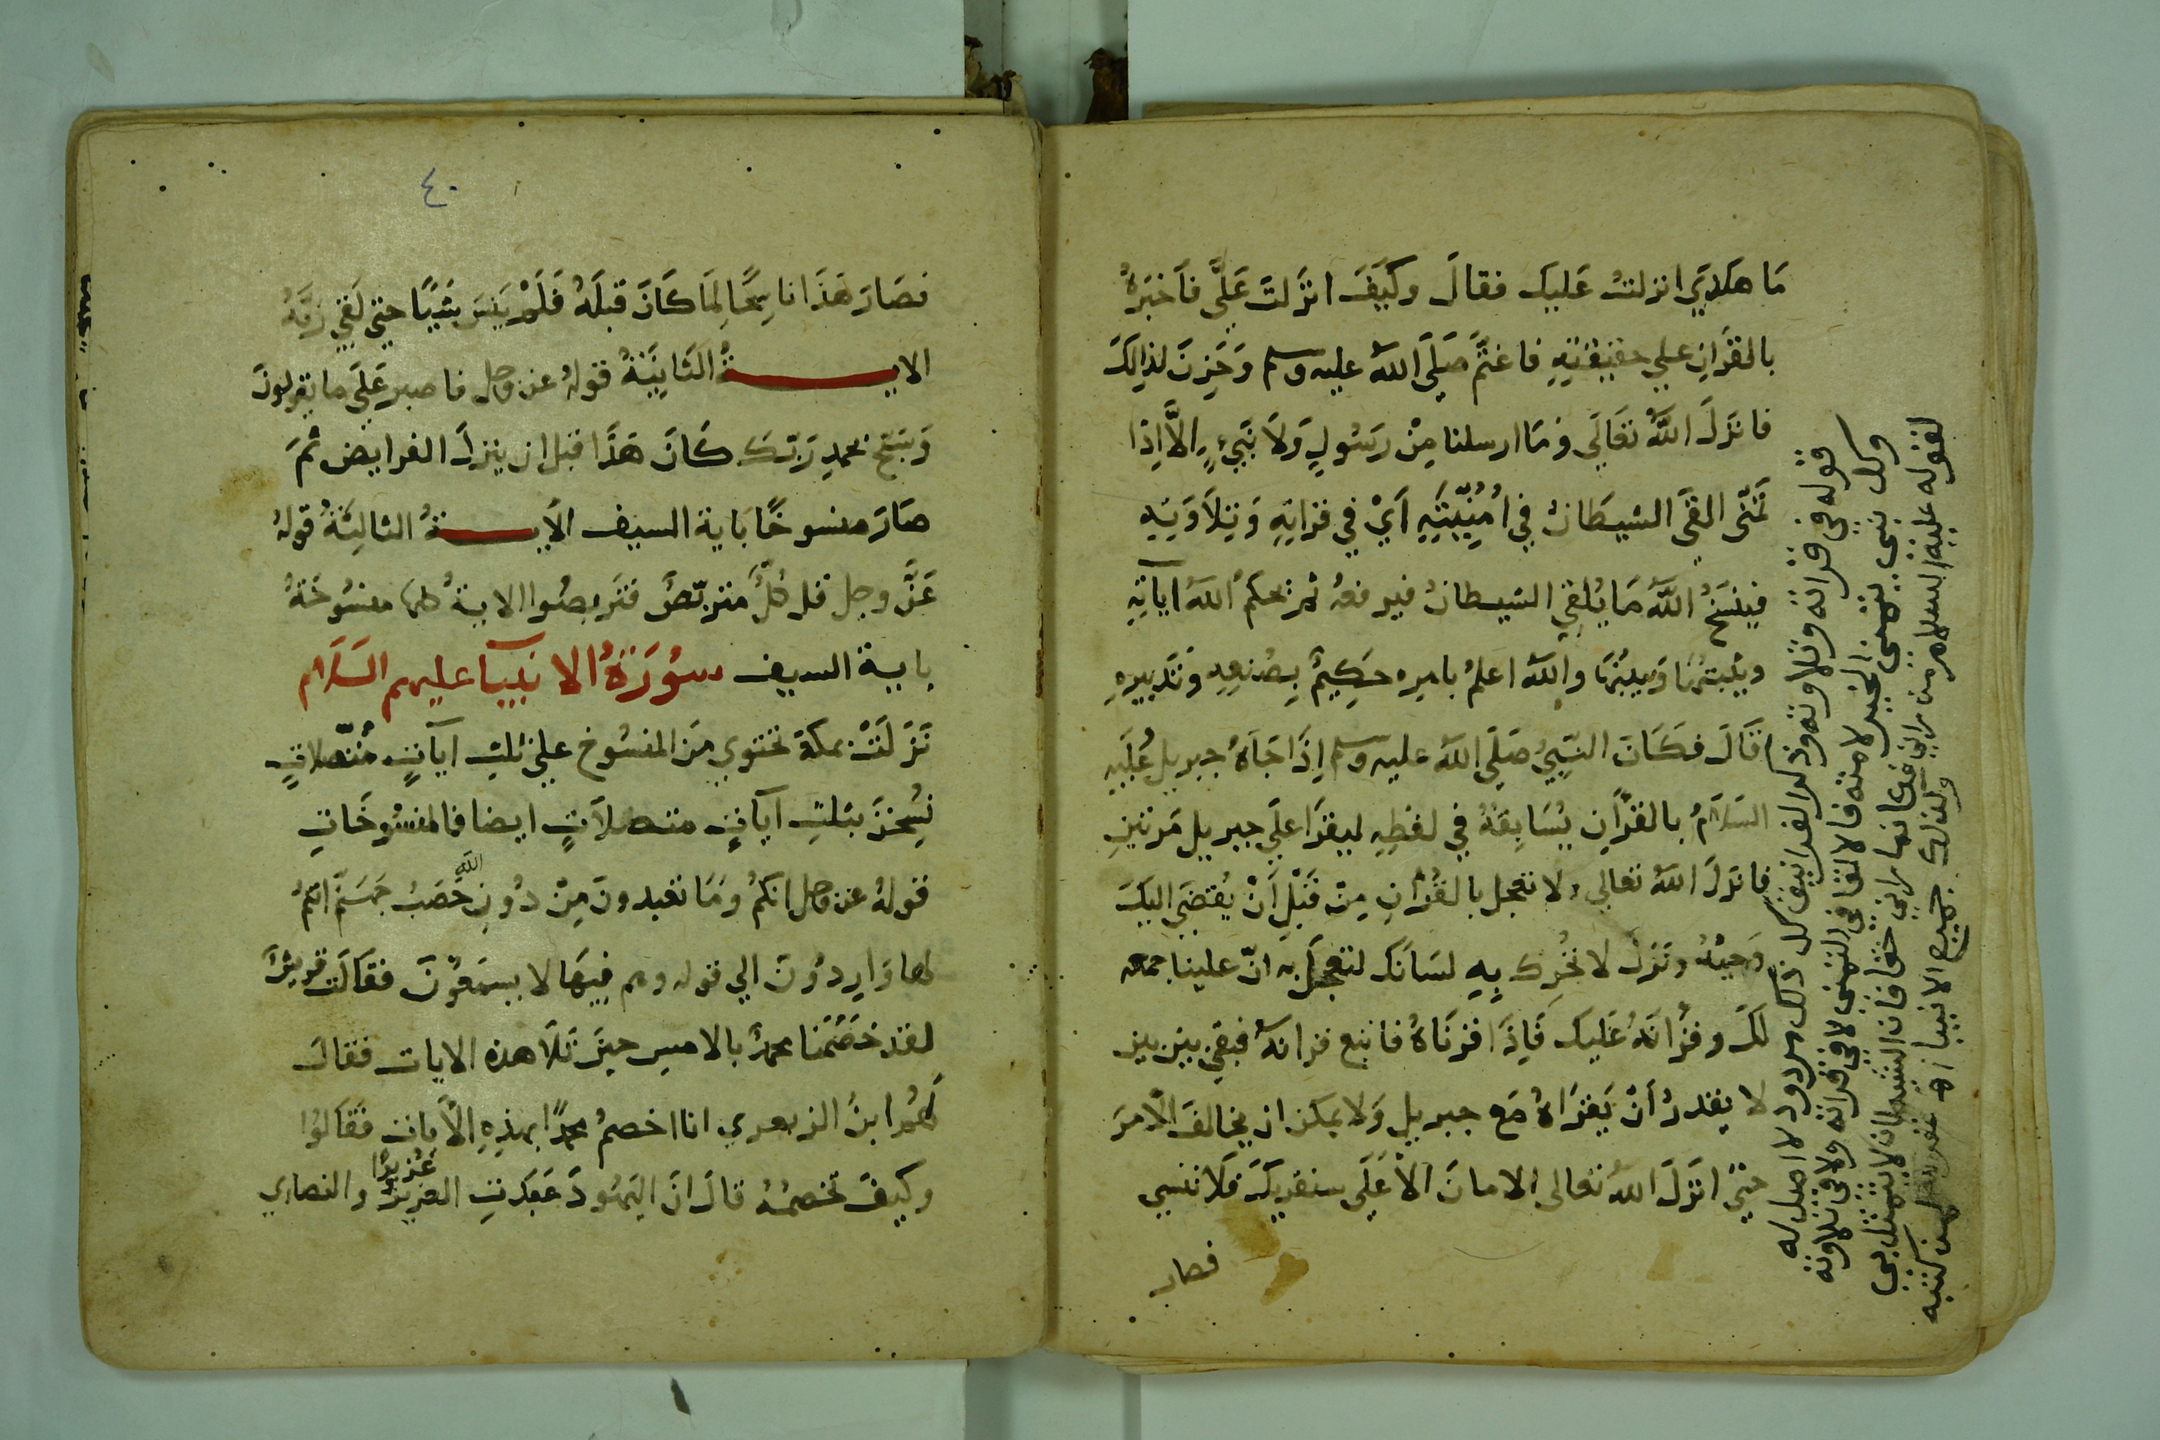 مَا هكذي انزلتُ عَليك فقالَ وكَيَفَ انزَلتَ عَلَّى فاَخبَرهُ
بالقرَانِ علي حقيقتِهِ فاغتَمَّ صَلَّى اللهُ عليه وسلم وَحَزِنَ لذالِكَ
فانزَلَ اللهُ تعَالَي وَمَا ارسلنا مِنْ رَسُولٍ وَلاَ نَبيٍ اِلَّا اِذَا
تَمنَّى القَى الشيطَانُ فِي اُمْنِيَّتِهِ اَيْ في قرايَتِهِ وَتِلَاوَتِهِ
فينسَخُ اللهُ مَا يُلقِي الشيطانُ فيرفعُه ثم يحكمُ اللهُ آيَاتِهِ
ويثبتُهَا وَيبيّنُهَا واللهُ اعلمُ بامرِه حَكِيمٌ بِصُنعِهِ وَتَدبيرِهِ
قَالَ فكَانَ النَبِيُ صَلَّى اللهُ عليه وسلم اِذَا جَاَهُ جبريل عَلَيهِ
السَلاَمُ بالقرْاَنِ يُسَابِقهُ في لفظِهِ ليقرَا علَي جبريل مَرتينِ
فانزَلَ اللهُ تعَالي ولا تعجل بالقُرْانِ مِنْ قَبْلِ اَنْ يُقتضَي اليكَ
وَحيُهُ ونَزلَ لا تحُرك بِهِ لسَانَك لتَعجَلَ به انّ علينا جمعه
لَكَ وقُرْانَهُ عَليك فَاِذَا قرنَاهُ فاتبع قرانهُ فبقي بين بين
لا يقدرُ اَنْ يَقرَاهُ مَع جبريل وَلا يمكن ان يخالفَ الامرَ
حتيَّ انزَلَ اللهُ تعالى الامانَ الاعَلَى سنقريكَ فلَا تنسي
فصار
قوله في قرانه وتلاوته وذكر الغرانيق كل ذلك مردود لا اصل له
وكل نبي يتمني الخير لامته فالالقا في التمني لا في قرانه ولا في تلاوته
لقوله عليه السلام من راني فكانما راني حقا فان الشيطان لا يتمثل بي
وكذلك جميع الانبيا اه غفر لمن كتبه
٤٠
فصَارَ هَذَا ناسِخًا لِمَا كَانَ قبلَهُ فَلَمْ يَنسَ شَيًا حتي لَقي رَبَّهُ
الايـــــةُ الثَانِيَةُ قولهُ عز وجل فاصبر عَلَى ما يقولونَ
وَسَبّح بحمدِ رَبّكَ كَانَ هَذَا قبل ان ينزلَ الفرايض ثمَ
صَارَ منسوخًا باَية السيف الاَيـــةُ الثالِثَةُ قولهُ
عَزَّ وجل قل كُلٌّ متربّصٌ فتَربصُوا الايةُ كلها منسُوخَةُ
باية السيف سُورَةُ الانبيا عليهم السَلَام
نَزَلَتْ بمكة تحتوي مَن المنسُوخ علي ثلثِ آيَاتٍ مُتّصلاتٍ
نُسِخنَ بثلثِ آيَاتٍ متصلاَتٍ ايضا فالمنسُوخَاتِ
قولهُ عز وجل انكمُ وَمَا تعبدونَ مِنْ دُونِ اللهِ حَصَبُ جَهَنَّمَ انتُم
لها وَارِدُونَ الي قوله وهم فِيهَا لا يسمَعُونَ فقَالَت قريشٌ
لقد خصَمَنا محمدٌ بالامسِ حينَ تَلَا هذه الايات فقالَ
لَهُم ابنُ الزبعري انا اخصمُ محمدًا بهذِهِ الاَيات فَقَالوُا
وكيفَ تخصمُهُ قالَ انَ اليَهُودَ عَبَدتِ العزيرُ عُزيرًا والنصاري